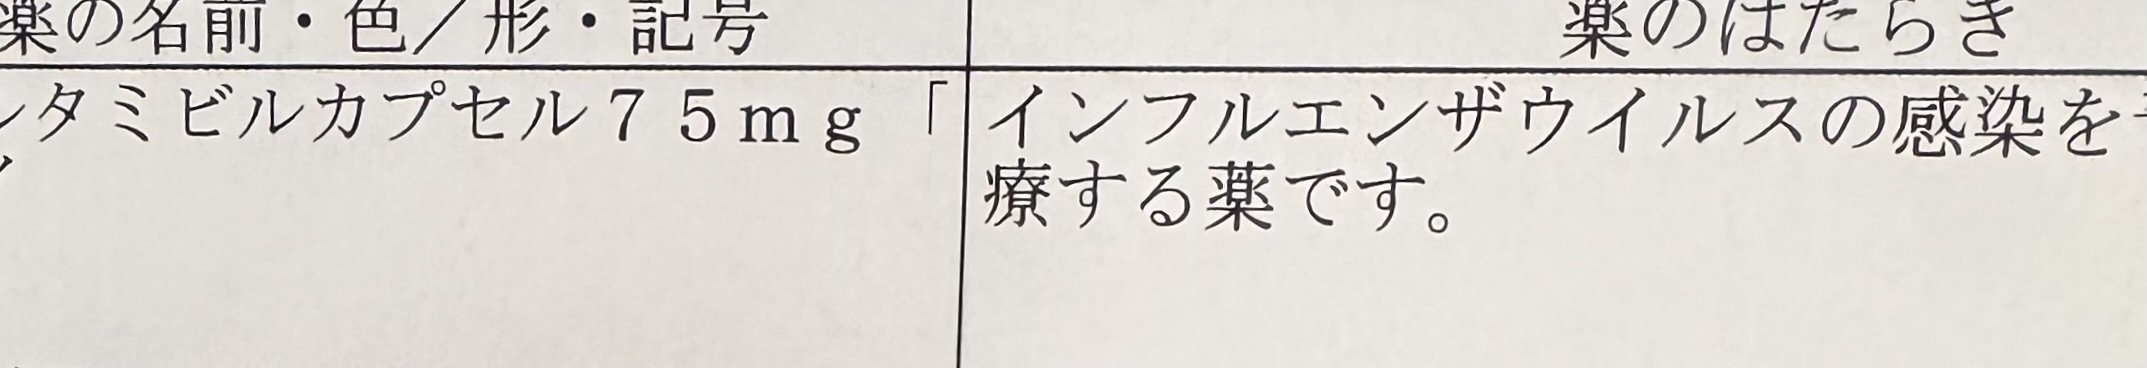 薬の名前・色／形・記号
薬のはたらき
タミビルカプセル７５ｍｇ「
インフルエンザウイルスの感染を
療する薬です。